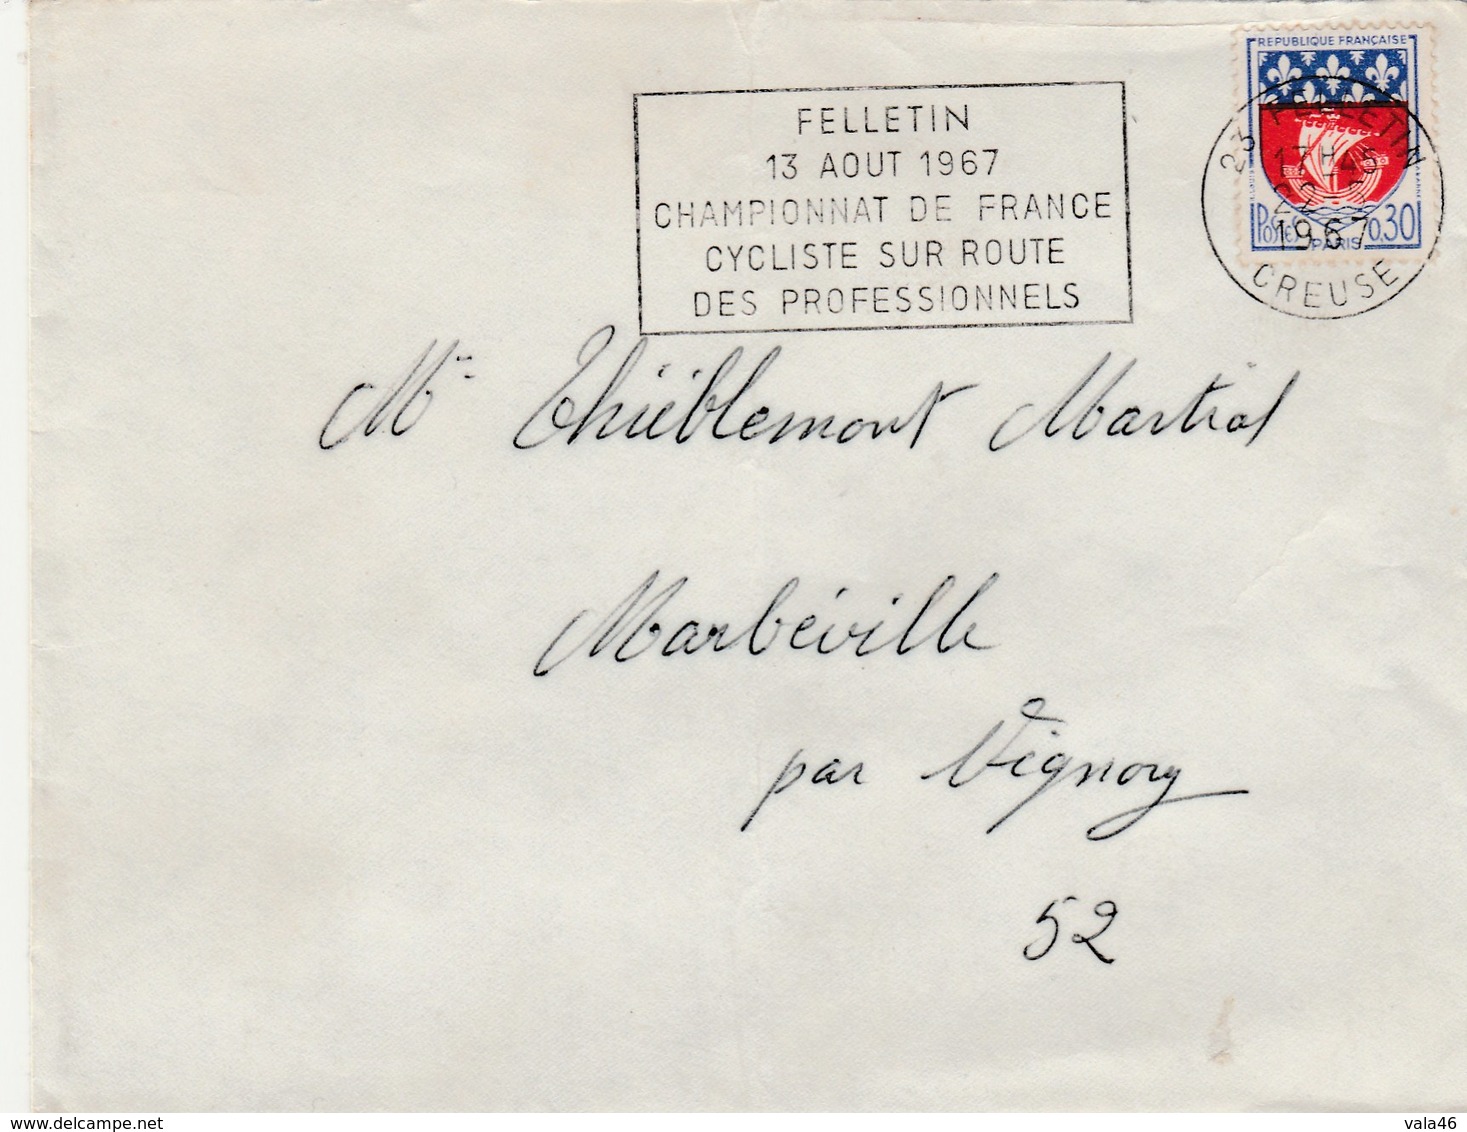 REPUBLIQUE FRANÇAISE
FELLETIN
13 AOUT 1967
CHAMPIONNAT DE FRANCE
CYCLISTE SUR ROUTE
DES PROFESSIONNELS
23 FELLETIN
17H45
22
1967
CREUSE
POSTES 0,30
PARIS
Mr Thiéblemont Martial
Marbéville
par Vignory
52
delcampe.net
vala46